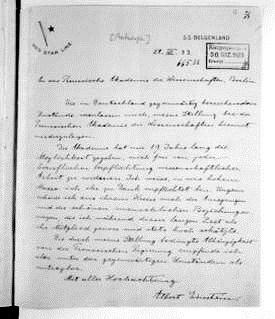 RED STAR LINE
S.S. BELGENLAND
[Antwerpen]
28. III 33
An die Preussische Akademie der Wissenschaften, Berlin
Die in Deutschland gegenwärtig herrschenden
Zustände veranlassen mich, meine Stellung bei der
Preussischen Akademie der Wissenschaften hiermit
niederzulegen.
Die Akademie hat mir 19 Jahre lang die
Möglichkeit gegeben, mich frei von jeder
beruflichen Verpflichtung wissenschaftlicher
Arbeit zu widmen. Ich weiss, in wie hohem
Masse ich ihr zu Dank verpflichtet bin. Ungern
scheide ich aus ihrem Kreise auch der Anregungen
und der schönen menschlichen Beziehungen
wegen, die ich während dieser langen Zeit als
ihr Mitglied genoss und stets hoch schätzte.
Die durch meine Stellung bedingte Abhängigkeit
von der Preussischen Regierung empfinde ich
aber unter den gegenwärtigen Umständen als
untragbar.
Mit aller Hochachtung
Albert Einstein.